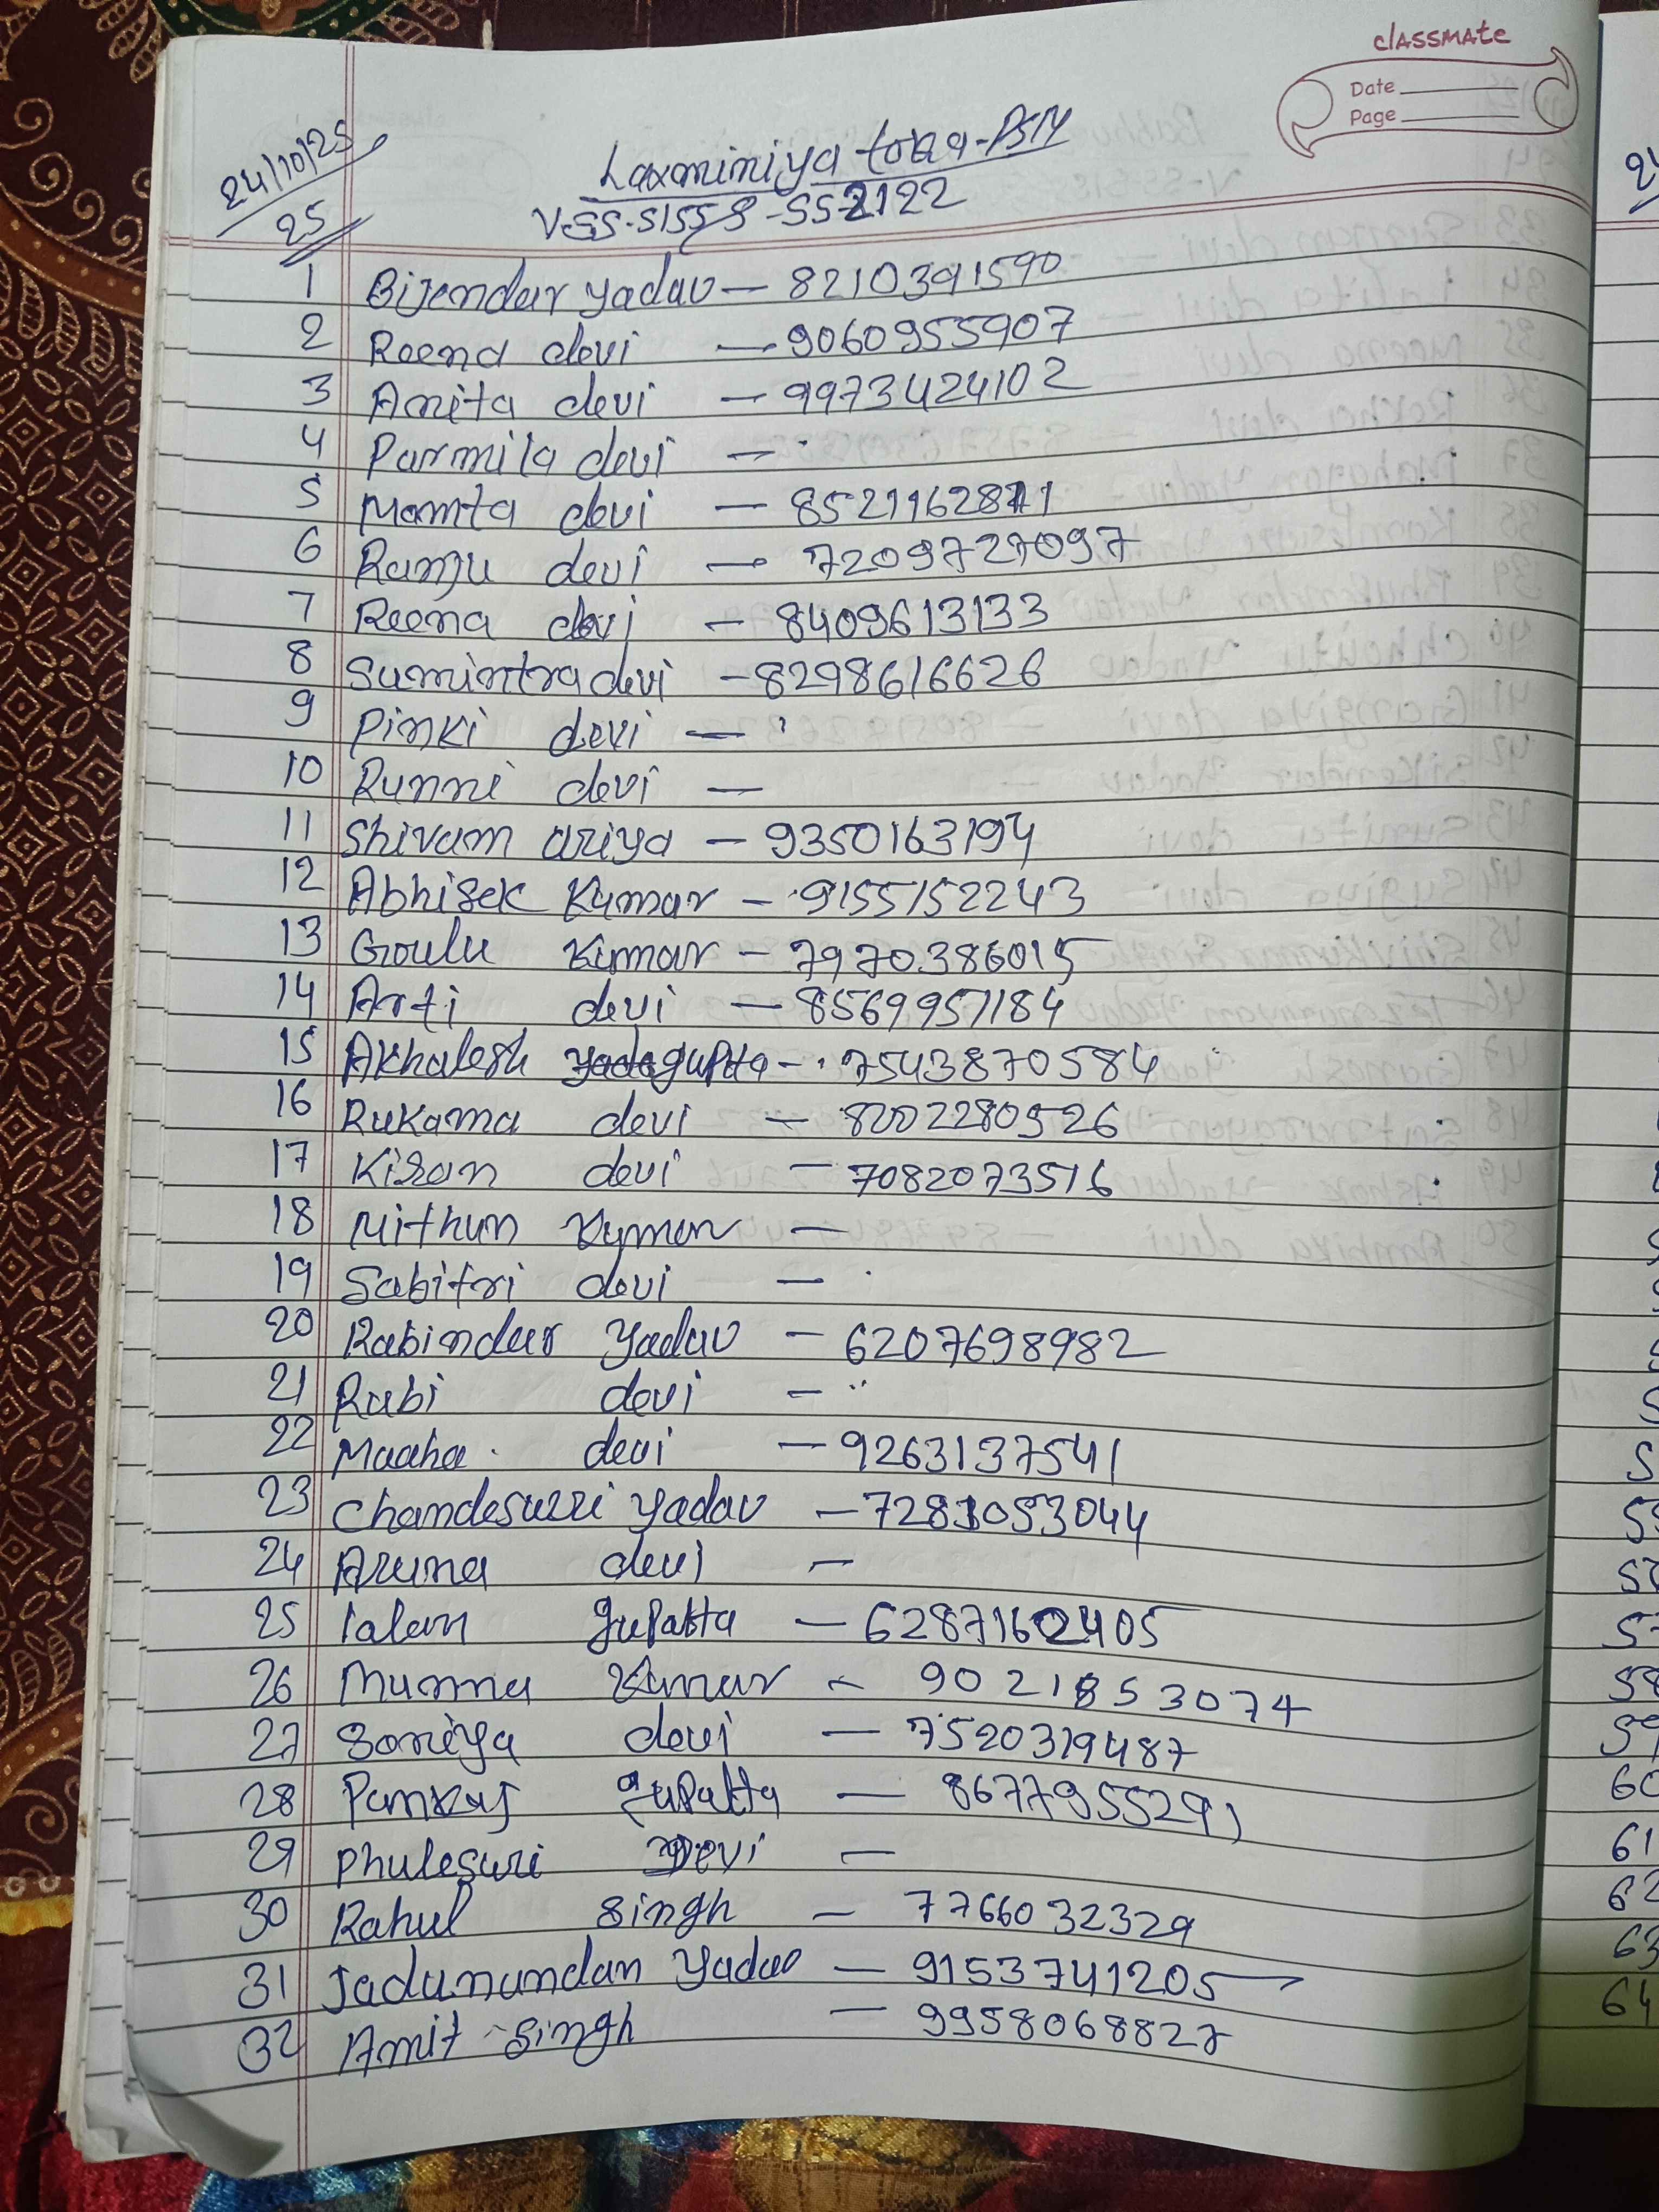 classmate
Date
Page
24/10/25
25
Laxminiya tola-PSM
V-SS-51558-SS-2122
1 Bijendar yadav — 8210391590
2 Reena devi — 9060955907
3 Anita devi — 9973424102
4 Parmila devi —
5 Mamta devi — 8521162871
6 Ranju devi — 7209727097
7 Reena devi — 8409613133
8 Sumintra devi — 8298616626
9 Pinki devi —
10 Runni devi —
11 Shivam ariya — 9350163194
12 Abhisek Kumar — 9155152243
13 Goulu Kumar — 7970386015
14 Arti devi — 8569957184
15 Akhalesh gupta — 7543870584
16 Rukama devi — 8202280526
17 Kiran devi — 7082073516
18 Mithun Kumar —
19 Sabitri devi —
20 Rabindar yadav — 6207698982
21 Rubi devi —
22 devi — 9263137541
23 Chandesurri yadav — 7283053044
24 Aruna devi —
25 lalan gupatta — 6287162405
26 Munna Kumar — 9021853074
27 Soniya devi — 7520319487
28 Pankaj gupatta — 8677955291
29 Phulesuri Devi —
30 Rahul Singh — 7766032329
31 Jadunundan Yadav — 9153741205
32 Amit Singh — 9958068827
60
61
62
63
64